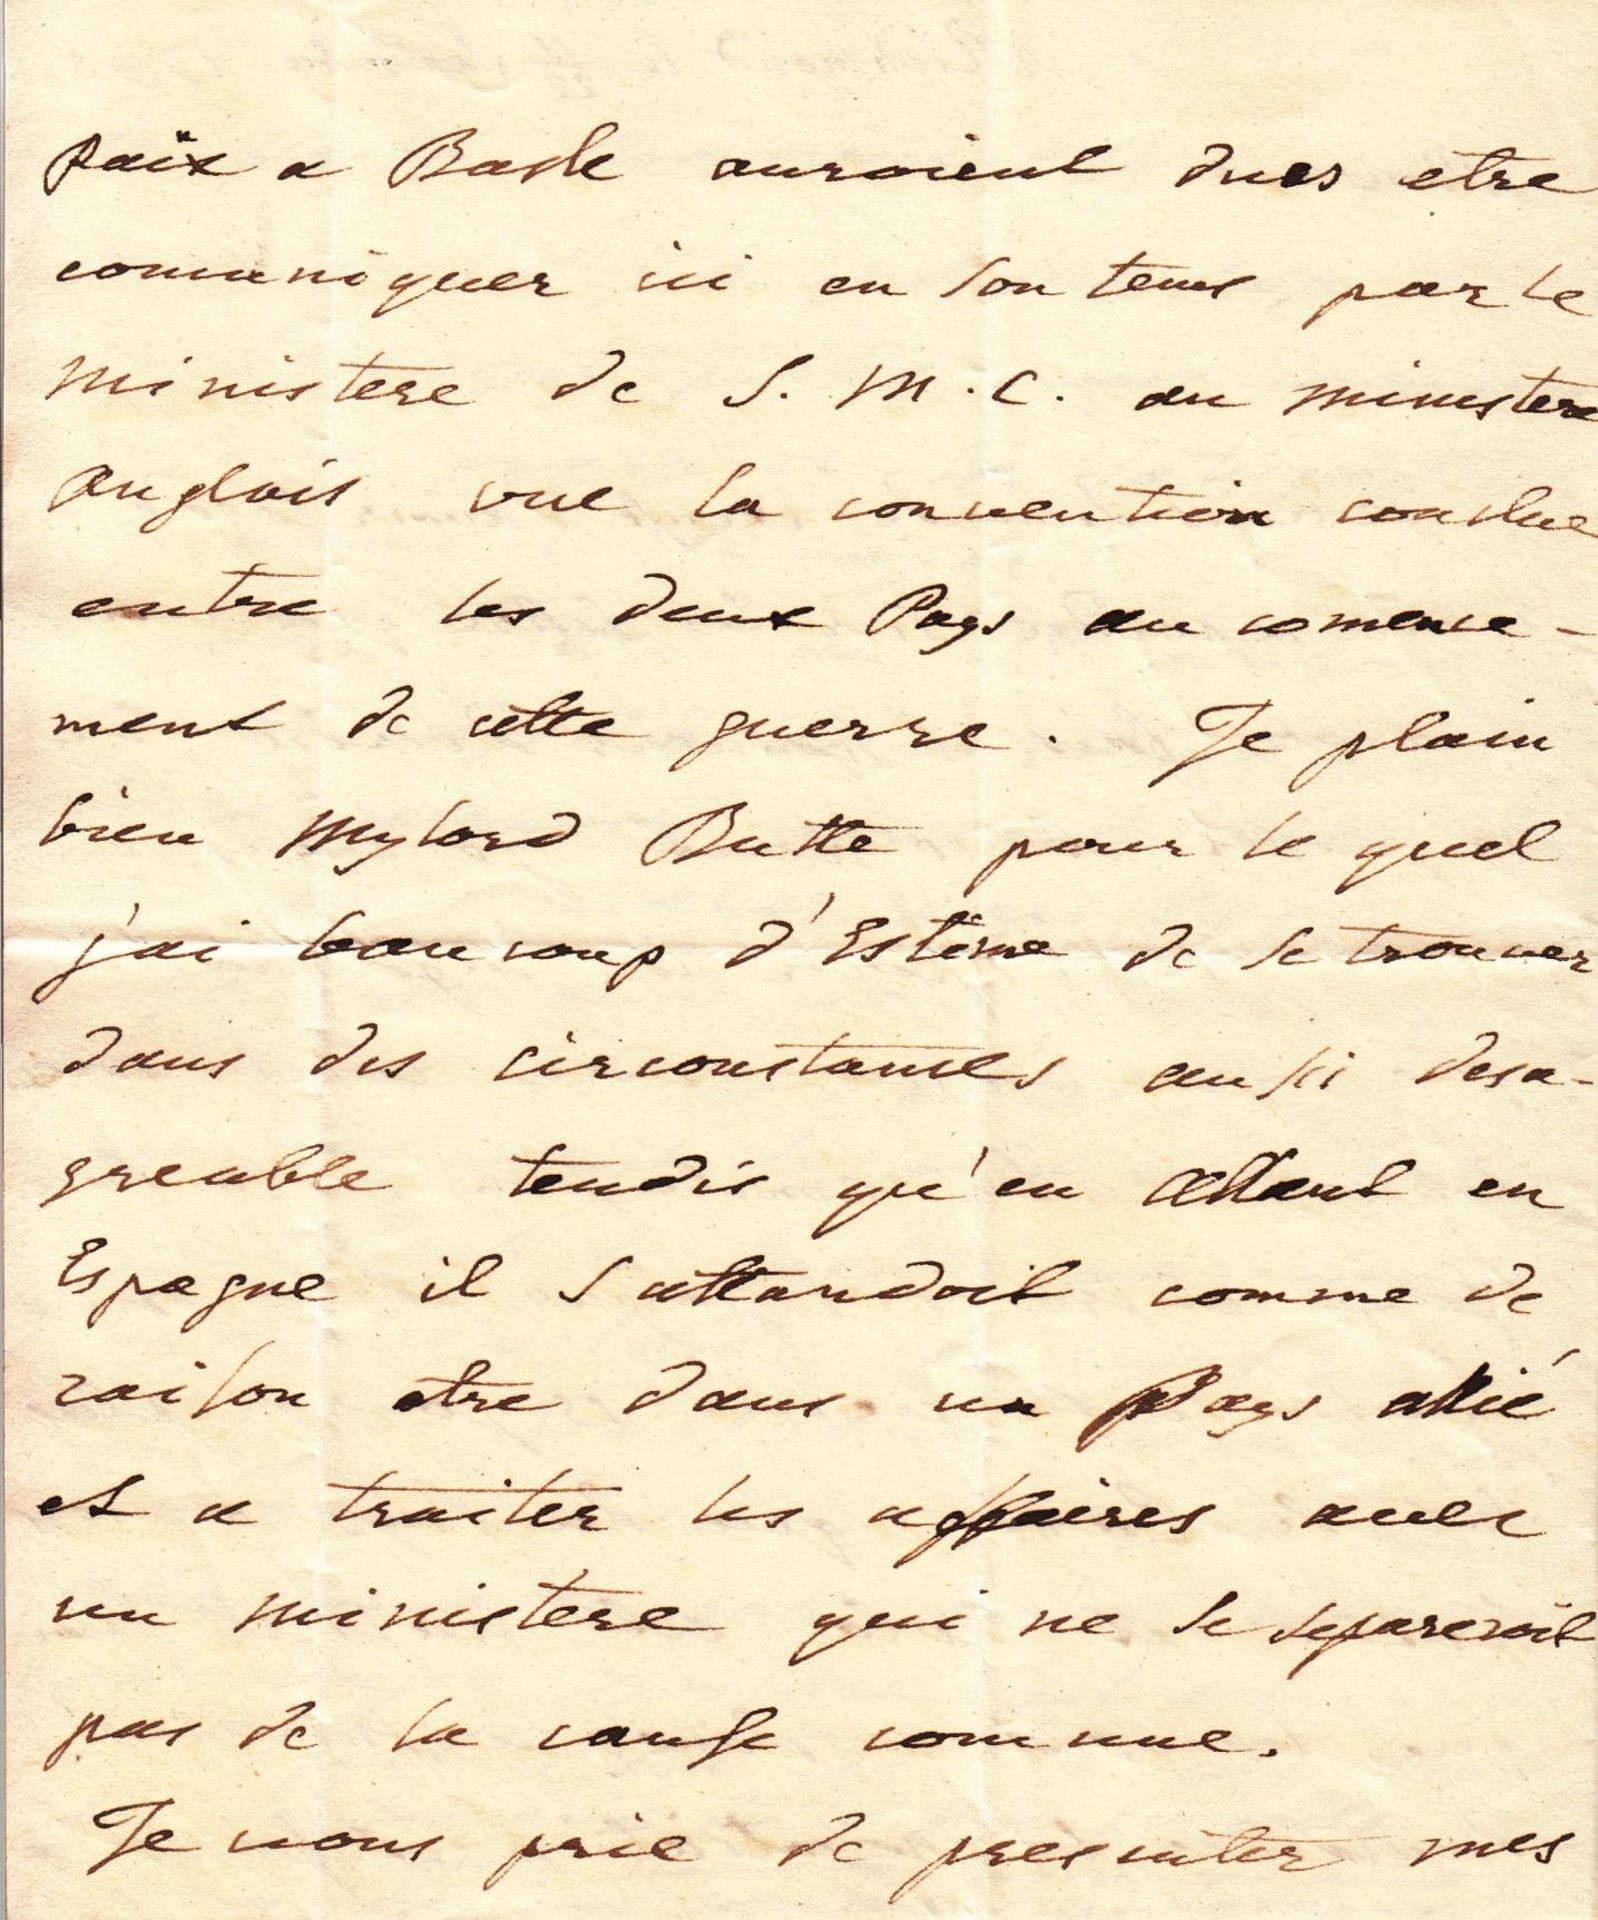 paix a Basle auroient dues etre
comuniquer ici en son tems par le
ministere de S. M. C. au ministere
anglois vue la convention conclue
entre les deux Pays au comence-
ment de cette guerre. Je plain
bien Mylord Butte pour le quel
j'ai beaucoup d'Estime de se trouver
dans des circonstances aussi desa-
greable tendis qu'en allant en
Espagne il s attandoit comme de
raison etre dans un Pays allié
et a traiter les affaires avec
un ministere qui ne se separeroit
pas de la cause comune.
Je vous prie de presenter mes